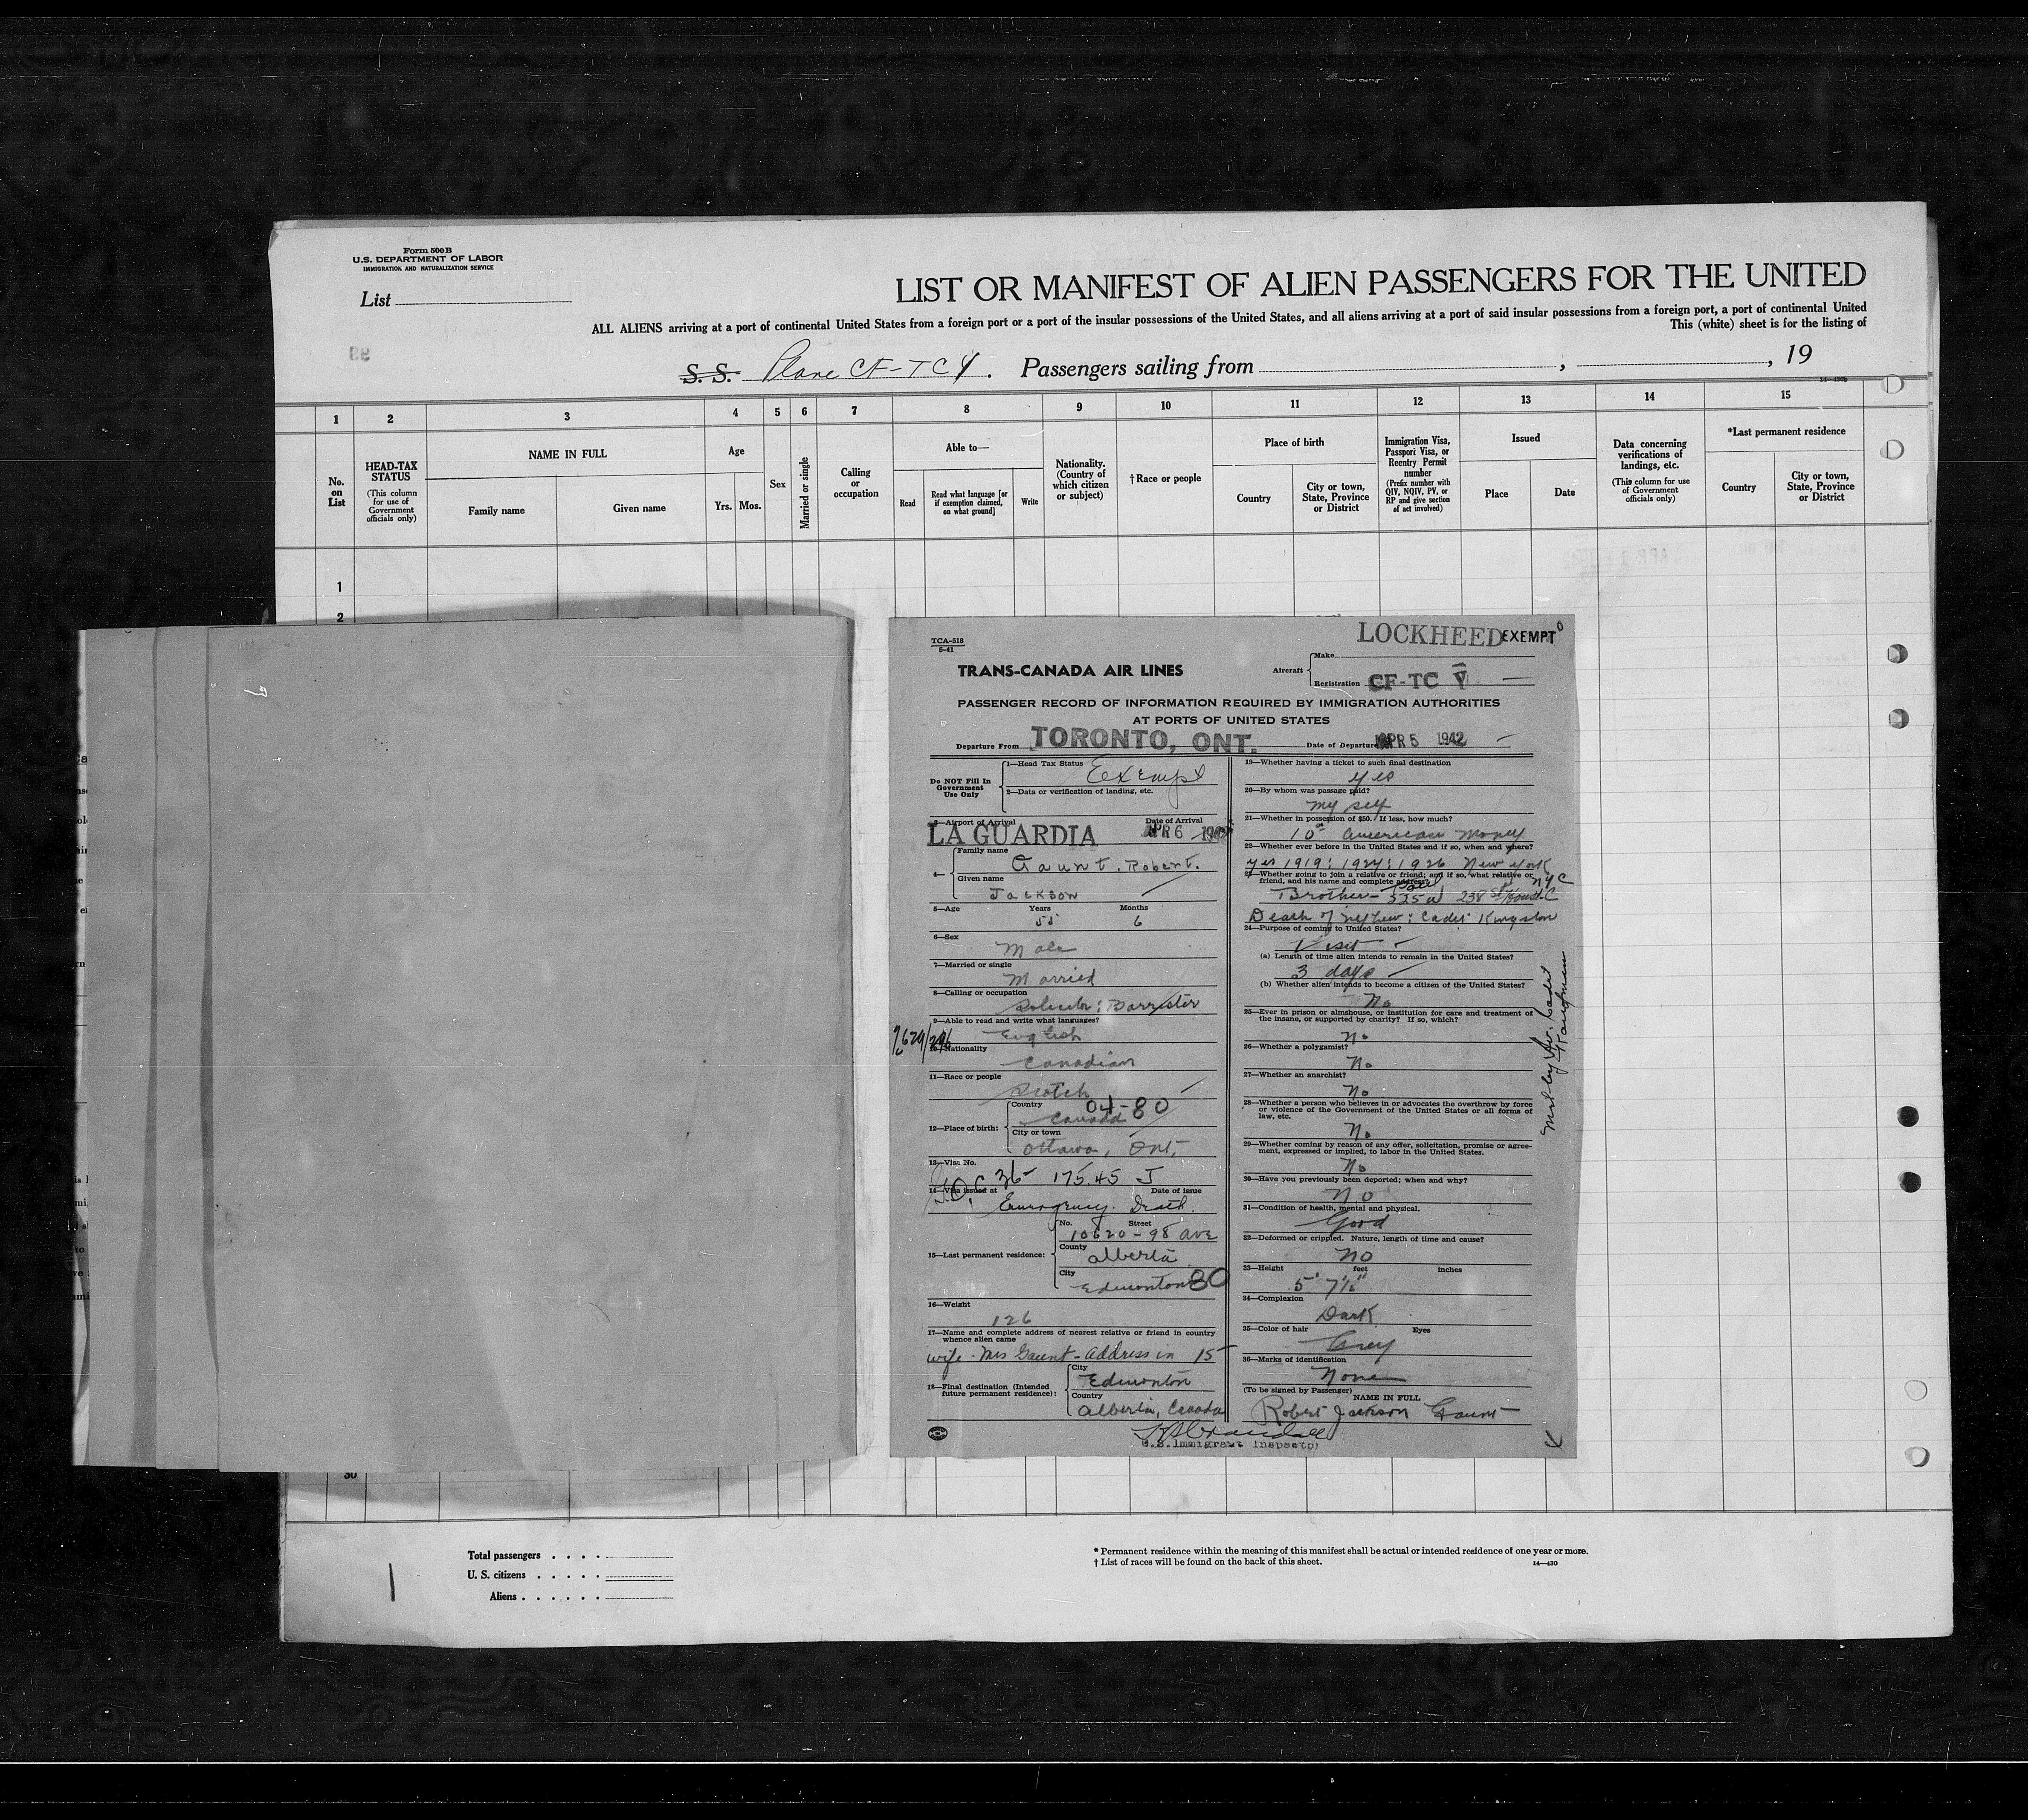 Form 500B
U.S. DEPARTMENT OF LABOR
IMMIGRATION AND NATURALIZATION SERVICE
List
LIST OR MANIFEST OF ALIEN PASSENGERS FOR THE UNITED
ALL ALIENS arriving at a port of continental United States from a foreign port or a port of the insular possessions of the United States, and all aliens arriving at a port of said insular possessions from a foreign port, a port of continental United
This (white) sheet is for the listing of
S. S. Plane CF-TCY. Passengers sailing from , , 19
1 2 3 4 5 6 7 8 9 10 11 12 13 14 15
No. on List
HEAD-TAX STATUS
(This column for use of Government officials only)
NAME IN FULL
Family name Given name
Age
Yrs. Mos.
Sex
Married or single
Calling or occupation
Able to—
Read
Read what language [or if exemption claimed, on what ground]
Write
Nationality. (Country of which citizen or subject)
†Race or people
Place of birth
Country
City or town, State, Province or District
Immigration Visa, Passport Visa, or Reentry Permit number
(Prefix number with QIV, NQIV, PV, or RP and give section of act involved)
Issued
Place Date
Data concerning verifications of landings, etc.
(This column for use of Government officials only)
*Last permanent residence
Country
City or town, State, Province or District
1
2
TCA-518
5-41
LOCKHEED EXEMPT
TRANS-CANADA AIR LINES
Aircraft
Make
Registration CF-TC V
PASSENGER RECORD OF INFORMATION REQUIRED BY IMMIGRATION AUTHORITIES
AT PORTS OF UNITED STATES
Departure From TORONTO, ONT. Date of Departure APR 5 1942
Do NOT Fill In Government Use Only
1—Head Tax Status Exempt
2—Data or verification of landing, etc.
3—Airport of Arrival Date of Arrival
LA GUARDIA APR 6 1942
4—
Family name Gaunt. Robert.
Given name
Jackson
5—Age Years Months
55 6
6—Sex
Male
7—Married or single
Married
8—Calling or occupation
Solicitor: Barrister
9—Able to read and write what languages?
English
10—Nationality
Canadian
11—Race or people
Scotch
12—Place of birth:
Country 04-80
Canada
City or town
Ottawa, Ont.
13—Visa No.
36- 175.45 J
14—Visa issued at Date of issue
Emergency. Death.
15—Last permanent residence:
No. Street
10620-98 ave
County
Alberta
City
Edmonton 80
16—Weight
126
17—Name and complete address of nearest relative or friend in country whence alien came
wife. Mrs Gaunt - Address in 15
18—Final destination (Intended future permanent residence):
City
Edmonton
Country
Alberta, Canada
19—Whether having a ticket to such final destination
yes
20—By whom was passage paid?
my self
21—Whether in possession of $50. If less, how much?
10 American Money
22—Whether ever before in the United States and if so, when and where?
yes 1919: 1924: 1926 New York
23—Whether going to join a relative or friend; and if so, what relative or friend, and his name and complete address?
NYC
Brother - 525 W 238 St
Death of nephew: Cadet Kingston
24—Purpose of coming to United States?
Visit
(a) Length of time alien intends to remain in the United States?
3 days
(b) Whether alien intends to become a citizen of the United States?
No
25—Ever in prison or almshouse, or institution for care and treatment of the insane, or supported by charity? If so, which?
No
26—Whether a polygamist?
No
27—Whether an anarchist?
No
28—Whether a person who believes in or advocates the overthrow by force or violence of the Government of the United States or all forms of law, etc.
No
29—Whether coming by reason of any offer, solicitation, promise or agreement, expressed or implied, to labor in the United States.
No
30—Have you previously been deported; when and why?
No
31—Condition of health, mental and physical.
Good
32—Deformed or crippled. Nature, length of time and cause?
No
33—Height feet inches
5' 7½"
34—Complexion
Dark
35—Color of hair Eyes
Grey
36—Marks of identification
None
(To be signed by Passenger) NAME IN FULL
Robert Jackson Gaunt
U.S. Immigrant Inspector
30
Total passengers
U. S. citizens
Aliens
* Permanent residence within the meaning of this manifest shall be actual or intended residence of one year or more.
† List of races will be found on the back of this sheet.
14—430